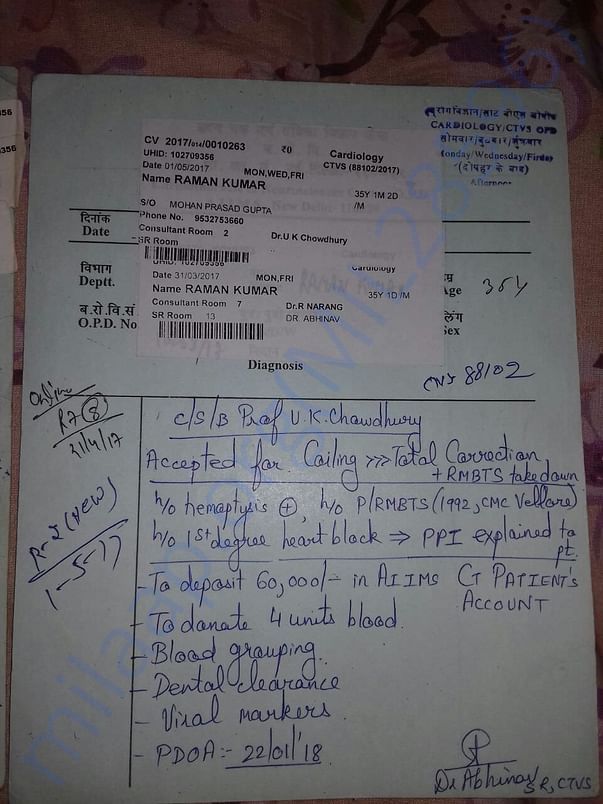 CARDIOLOGY/CTVS OPD
सोमवार/बुधवार/शुक्रवार
Monday/Wednesday/Firday
(दोपहर के बाद)
Afternoon
CV 2017/014/0010263 ₹0 Cardiology
UHID: 102709356 CTVS (88102/2017)
Date 01/05/2017 MON,WED,FRI
Name RAMAN KUMAR 35Y 1M 2D
/M
S/O MOHAN PRASAD GUPTA
Phone No. 9532753660
Consultant Room 2 Dr.U K Chowdhury
SR Room
UHID: 102709356 Cardiology
Date 31/03/2017 MON,FRI
Name RAMAN KUMAR 35Y 1D /M
Consultant Room 7 Dr.R NARANG
SR Room 13 DR. ABHINAV
दिनांक
Date
विभाग
Deptt.
Age 35y
ब.रो.वि.सं
O.P.D. No
लिंग
Sex
Diagnosis
CTVS 88102
Online
R7 8
31/4/17
R-2 (New)
1-5-17
c/s/b Prof U.K. Chowdhury
Accepted for Coiling >>> Total Correction
+ RMBTS takedown
h/o hemoptysis ⊕, h/o P/RMBTS (1992, CMC Vellore)
h/o 1st degree heart block ⇒ PPI explained to
pt.
- To deposit 60,000/- in AIIMS CT PATIENT'S
ACCOUNT
- To donate 4 units blood.
- Blood grouping.
- Dental clearance
- Viral markers.
- PDOA:- 22/01/'18
Dr Abhinav
SR, CTVS
356
356
milaap.org